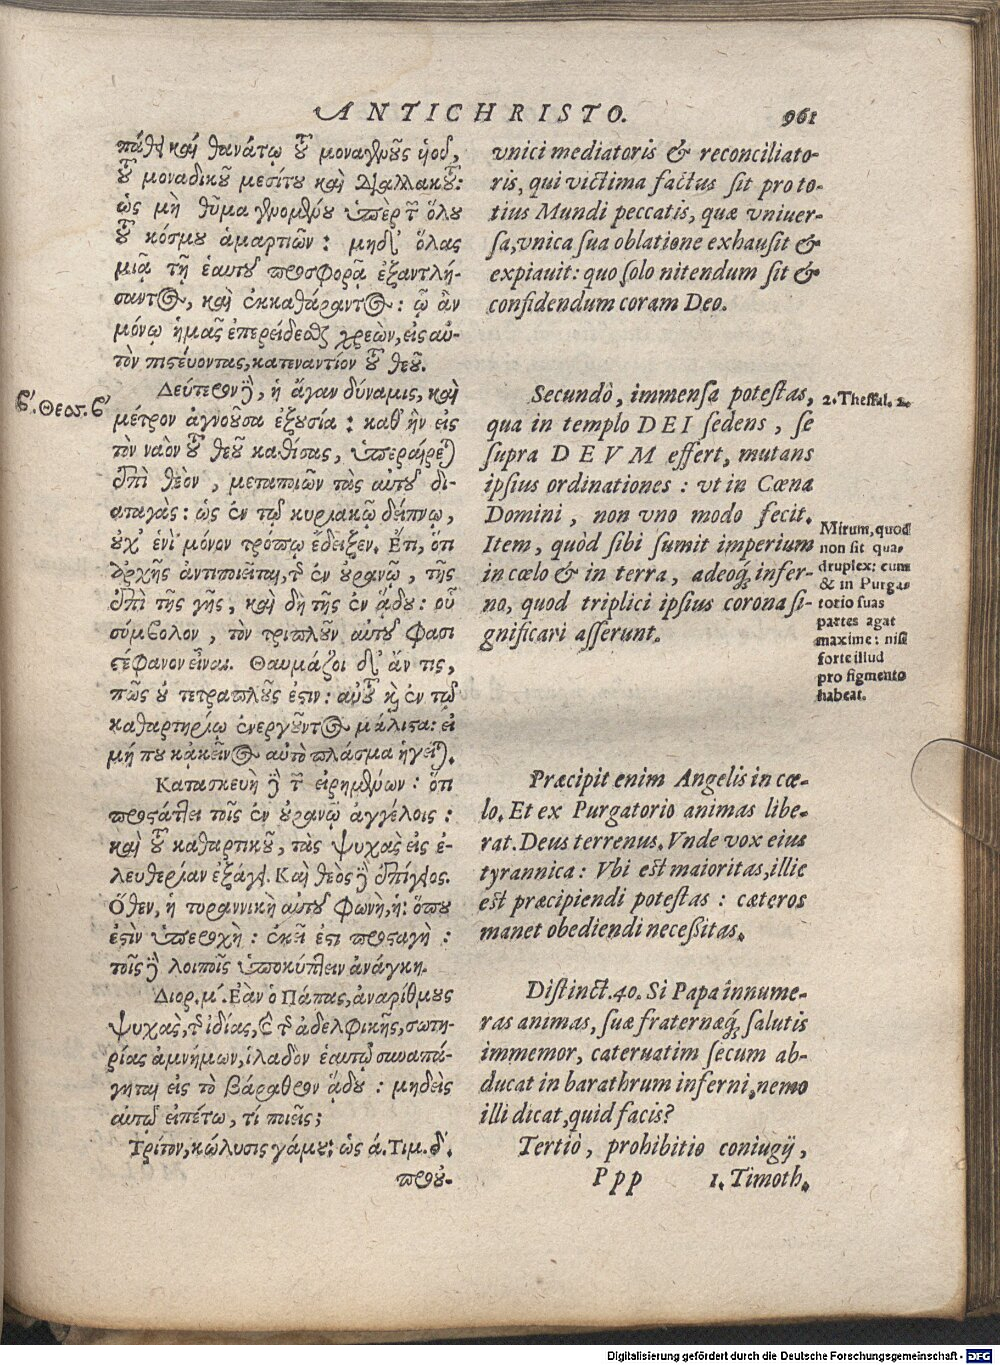 ANTICHRISTO. 961
πάθει καὶ θανάτῳ τοῦ μονογενοῦς υἱοῦ,
τοῦ μοναδικοῦ μεσίτου καὶ διαλλακτοῦ:
ὡς μὴ θῦμα γενομένου ὑπὲρ τῶν ὅλου
τοῦ κόσμου ἁμαρτιῶν: μηδ' ὅλας
μιᾷ τῇ ἑαυτοῦ προσφορᾷ ἐξαντλή-
σαντος, καὶ ἐκκαθάραντος: ᾧ ἂν
μόνῳ ἡμᾶς ἐπερείδεσθαι χρεὼν, εἰς αὐ-
τὸν πιστέυοντας, κατεναντίον τοῦ θεοῦ.
β'. Θεσσ. β'
Δεύτερον δὲ, ἡ ἄγαν δύναμις, καὶ
μέτρον ἀγνοοῦσα ἐξουσία: καθ' ἣν εἰς
τὸν ναὸν τοῦ θεοῦ καθίσας, ὑπεραίρεται
ἐπὶ θεὸν, μεταποιῶν τὰς αὐτοῦ δι-
αταγάς: ὡς ἐν τῷ κυριακῷ δείπνῳ,
οὐχ' ἑνὶ μόνον τρόπῳ ἔδειξεν. Ετι, ὅτι
ἀρχῆς ἀντιποιεῖται, τῆς ἐν οὐρανῷ, τῆς
ἐπὶ τῆς γῆς, καὶ δὴ τῆς ἐν ᾅδου: οὗ
σύμβολον, τὸν τριπλοῦν αὐτοῦ φασι
στέφανον εἶναι. Θαυμάζοι δ' ἄν τις,
πῶς οὐ τετραπλοῦς ἐστιν: αὐτοῦ καὶ ἐν τῷ
καθαρτηρίῳ ἐνεργοῦντος μάλιστα: εἰ
μή που κἀκεῖνος αὐτὸ πλάσμα ἡγεῖται.
Κατασκευὴ δὲ τῶν εἰρημένων: ὅτι
προστάττει τοῖς ἐν οὐρανῷ ἀγγέλοις:
καὶ τοῦ καθαρτικοῦ, τὰς ψυχὰς εἰς ἐ-
λευθερίαν ἐξάγει. Καὶ θεὸς δὲ ἐπίγειος.
Οθεν, ἡ τυραννικὴ αὐτοῦ φωνὴ, ἡ: ὅπου
ἐστὶν ὑπεροχὴ: ἐκεῖ ἐστι προσταγὴ:
τοῖς δὲ λοιποῖς ὑποκύπτειν ἀνάγκη.
Διορ. μ'. Εὰν ὁ Πάπας, ἀναρίθμους
ψυχὰς, τῆς ἰδίας, καὶ τῆς ἀδελφικῆς, σωτη-
ρίας ἀμνήμων, ἰλαδὸν ἑαυτῷ συναπά-
γηται εἰς τὸ βάραθρον ᾅδου: μηδεὶς
αὐτῷ εἰπέτω, τί ποιεῖς;
Τρίτον, κώλυσις γάμου: ὡς ά. Τιμ. δ'.
πρου-
vnici mediatoris & reconciliato-
ris, qui victima factus sit pro to-
tius Mundi peccatis, quæ vniuer-
sa, vnica sua oblatione exhausit &
expiauit: quo solo nitendum sit &
confidendum coram Deo.
Secundò, immensa potestas,
qua in templo DEI sedens, se
supra DEVM effert, mutans
ipsius ordinationes: vt in Cœna
Domini, non vno modo fecit.
Item, quòd sibi sumit imperium
in cœlo & in terra, adeoq́; infer-
no, quod triplici ipsius corona si-
gnificari asserunt.
2. Thessal. 2.
Mirum, quod
non sit qua-
druplex: cum
& in Purga-
torio suas
partes agat
maxime: nisi
forte illud
pro figmento
habeat.
Præcipit enim Angelis in cœ-
lo. Et ex Purgatorio animas libe-
rat. Deus terrenus. Vnde vox eius
tyrannica: Vbi est maioritas, illic
est præcipiendi potestas: cæteros
manet obediendi necessitas.
Distinct. 40. Si Papa innume-
ras animas, suæ fraternæq́; salutis
immemor, cateruatim secum ab-
ducat in barathrum inferni, nemo
illi dicat, quid facis?
Tertiò, prohibitio coniugij,
Ppp 1. Timoth.
Digitalisierung gefördert durch die Deutsche Forschungsgemeinschaft - DFG